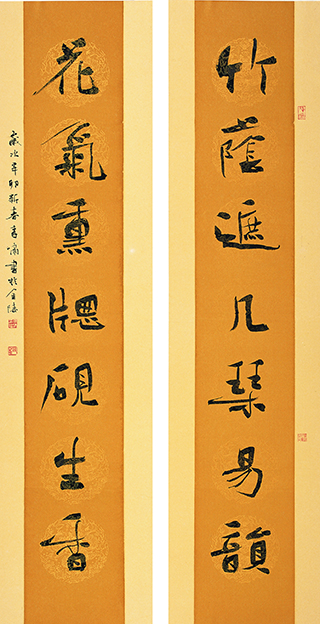 竹蔭遮几琹易韻
花氣熏牕硯生香
歲次辛卯新春書於金陵